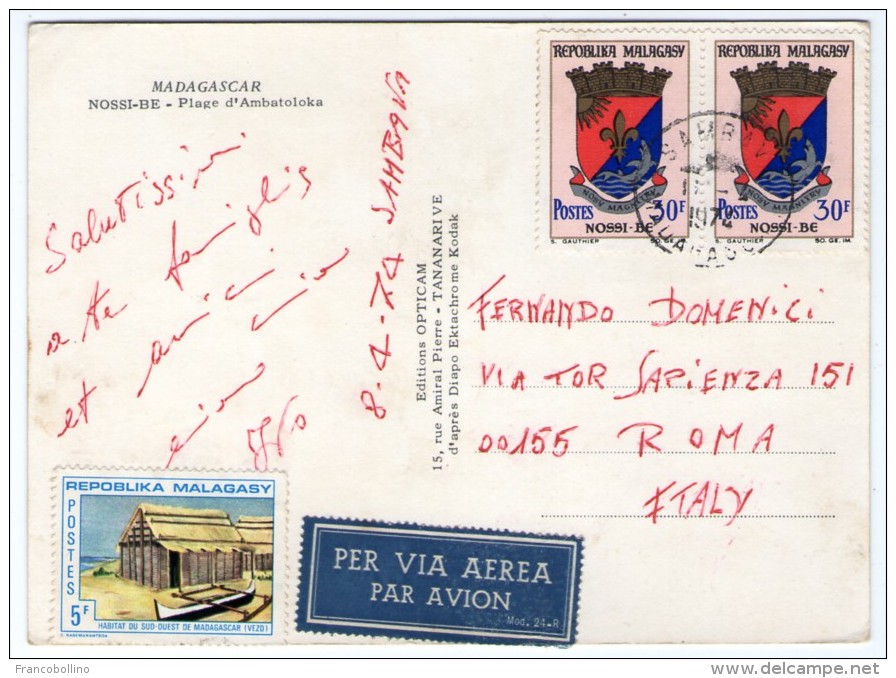 MADAGASCAR
NOSSI-BE - Plage d'Ambatoloka
Salutissimi
a te famiglia
et amici
8-4-74 SAMBAVA
Editions OPTICAM
15, rue Amiral Pierre - TANANARIVE
d'après Diapo Ektachrome Kodak
REPOBLIKA MALAGASY
NOSY MAGNITRY
POSTES 30F
NOSSI-BE
S. GAUTHIER SO.GE.IM.
REPOBLIKA MALAGASY
NOSY MAGNITRY
POSTES 30F
NOSSI-BE
S. GAUTHIER SO.GE.IM.
SAMBAVA
1974
FERNANDO DOMENICI
VIA TOR SAPIENZA 151
00155 ROMA
ITALY
REPOBLIKA MALAGASY
POSTES
5F
HABITAT DU SUD-OUEST DE MADAGASCAR (VEZO)
PER VIA AEREA
PAR AVION
Mod. 24-R
Francobollino
delcampe.net